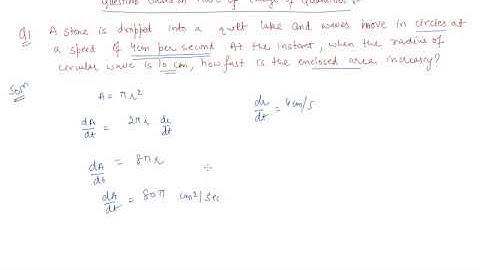 Question based on Rate of Change of Quantities
Q1 A stone is dropped into a quit lake and waves move in circles at
a speed of 4cm per second At the instant, when the radius of
circular wave is 10 cm, how fast is the enclosed area increasing?
Soln
A = πr²
dA/dt = 2πr dr/dt
dr/dt = 4cm/s
dA/dt = 8πr
dA/dt = 80π cm²/sec